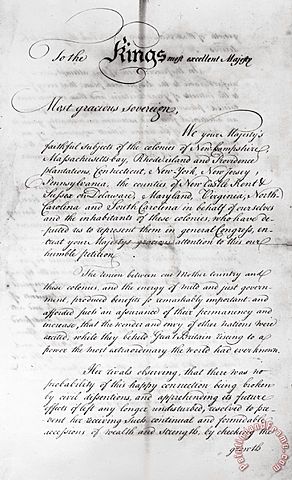 To the Kings most excellent Majesty
Most gracious Sovereign,
We your Majesty's
faithful subjects of the colonies of New hampshire,
Massachusetts bay, Rhode island and Providence
plantations, Connecticut, New-York, New Jersey
Pennsylvania, the counties of New Castle Kent &
Sussex on Delaware, Maryland, Virginia, North-
Carolina and South Carolina in behalf of ourselves
and the inhabitants of these colonies, who have de-
puted us to represent them in general Congress, en-
treat your Majestys gracious attention to this our
humble petition.
The union between our Mother Country and
these colonies, and the energy of mild and just govern-
ment, produced benefits so remarkably important, and
afforded such an assurance of their permanency and
increase, that the wonder and envy of other Nations were
excited, while they beheld Great Britain riseing to a
power the most extraordinary the world had ever known.
Her rivals observing, that there was no
probability of this happy connection being broken
by civil dissentions, and apprehending its future
effects if left any longer undisturbed, resolved to pre-
vent her receiving such continual and formidable
accessions of wealth and strength, by checking the
growth